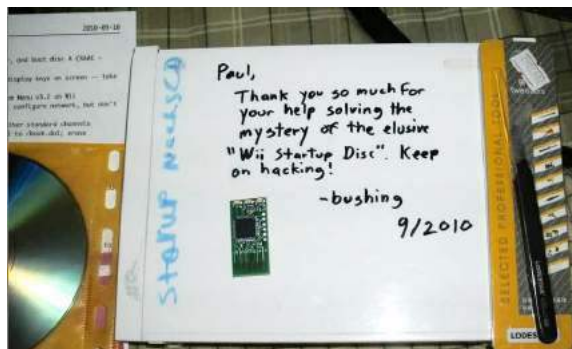 2010-09-10
, and boot disc. A CSAAC -
display keys on screen -- take
Menu v3.2 on Wii
configure network, but don't
other standard channels.
Startup NeedsCD
Paul,
Thank you so much for
your help solving the
mystery of the elusive
"Wii Startup Disc". Keep
on hacking!
-bushing
9/2010
SELECTED PROFESSIONAL TOOL
LODES